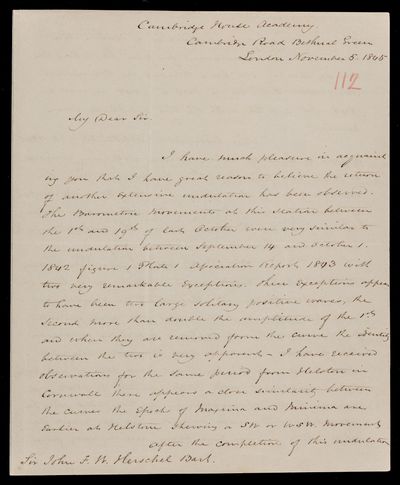 Cambridge House Academy.
Cambridge Road Bethnal Green
London November 5. 1845
112
My Dear Sir.
I have much pleasure in acquaint
ing you that I have great reason to believe the return
of another extensive undulation has been observed.
The Barometric movements at this Station between
the 1st and 19th of last October were very similar to
the undulation between September 14 and October 1.
1842 figure 1 Plate 1 Association Report 1843 with
two very remarkable exceptions. These exceptions appear
to have been two large solitary positive waves, the
second more than double the amplitude of the 1st
and when they are removed from the curve the identity
between the two is very apparent – I have received
observations for the same period from Helston in
Cornwall there appears a close similarity between
the curves the Epoch of Maxima and Minima are
Earlier at Helston shewing a SW or WSW. Movement
after the completion of this undulation
Sir John F. W. Herschel Bart.